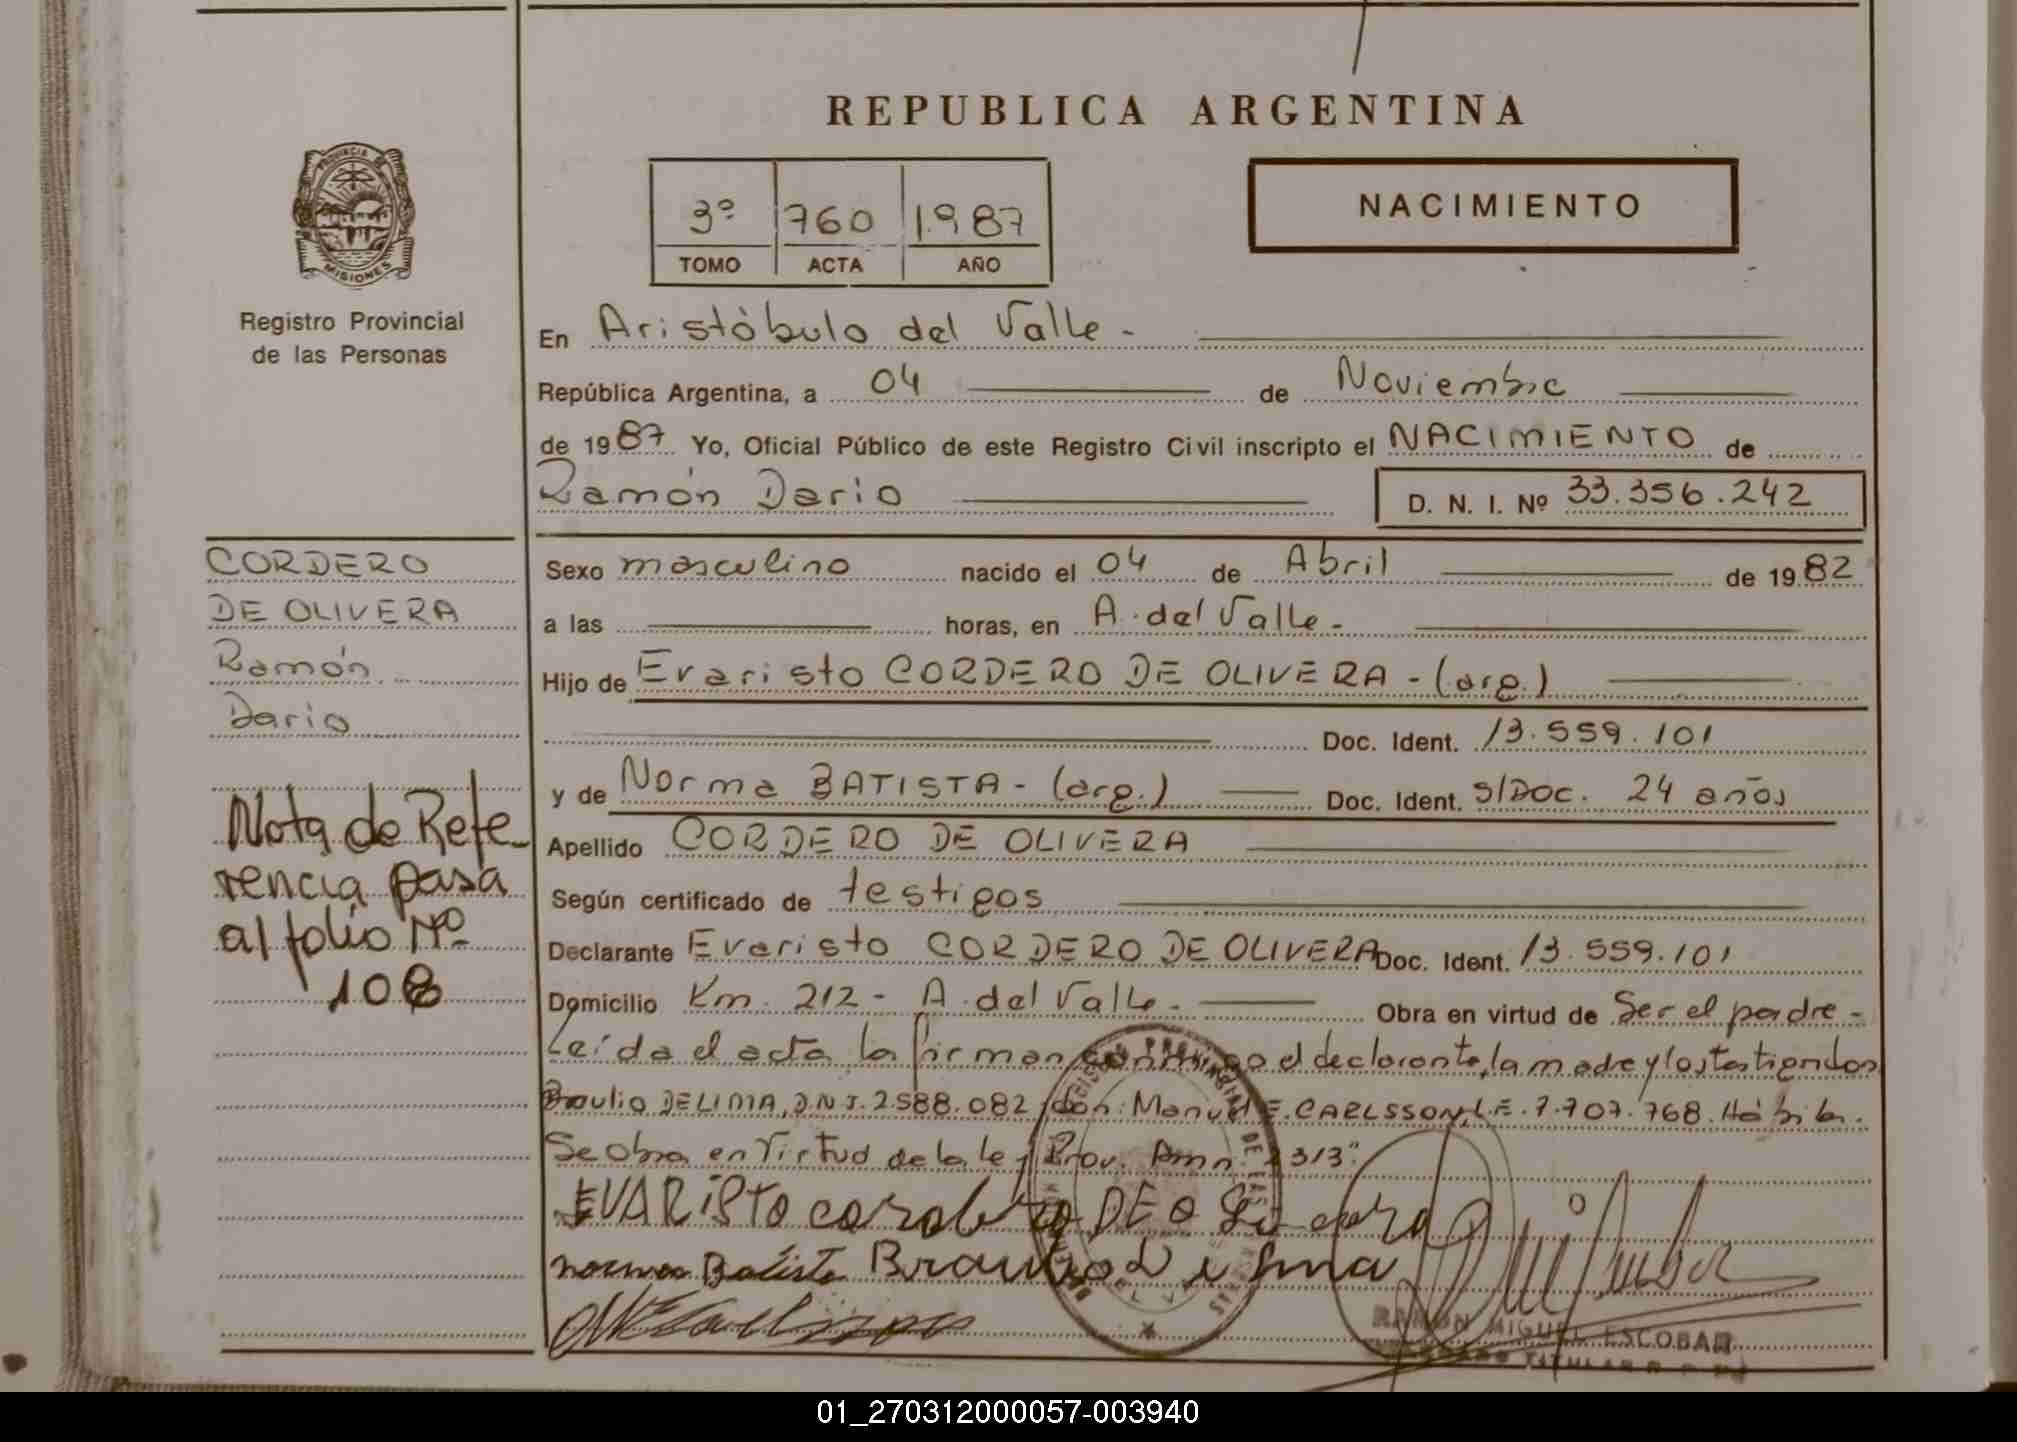 REPUBLICA ARGENTINA
PROVINCIA DE
MISIONES
Registro Provincial
de las Personas
3º 760 1987
TOMO ACTA AÑO
NACIMIENTO
En Aristóbulo del Valle -
República Argentina, a 04 de Noviembre
de 1987 Yo, Oficial Público de este Registro Civil inscripto el NACIMIENTO de
Ramón Dario D. N. I. Nº 33.356.242
CORDERO
DE OLIVERA
Ramón
Dario
Nota de Refe-
rencia pasa
al folio Nº
108
Sexo masculino nacido el 04 de Abril de 1982
a las horas, en A. del Valle -
Hijo de Evaristo CORDERO DE OLIVERA - (arg.)
Doc. Ident. 13.559.101
y de Norma BATISTA - (arg.) Doc. Ident. S/Doc. 24 años
Apellido CORDERO DE OLIVERA
Según certificado de testigos
Declarante Evaristo CORDERO DE OLIVERA Doc. Ident. 13.559.101
Domicilio Km. 212 - A. del Valle - Obra en virtud de Ser el padre -
Leída el acta la firman conmigo el declarante, la madre y los testigos don
Braulio DE LIMA, D.N.I. 2.588.082 y don: Manuel E. CARLSSON, L.E. 7.707.768. Hábiles.
Se obra en Virtud de la ley Prov. Amn. 2313"
EVARISTO cordero DE Olivera
norma Batista Braulio D Lima
RAMON MIGUEL ESCOBAR
TITULAR R. P. P.
01_270312000057-003940